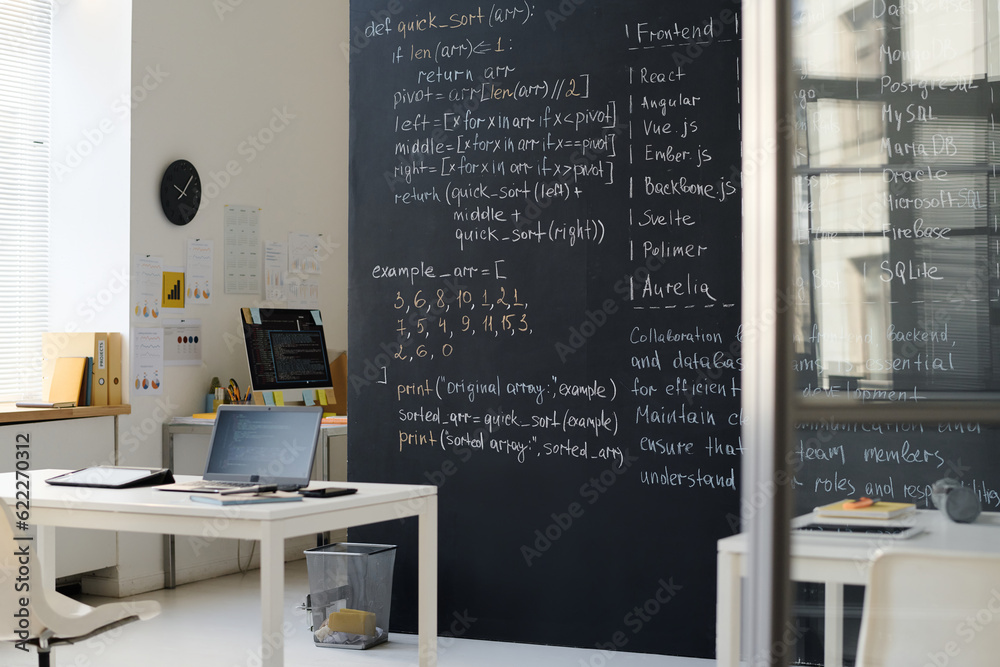 def quick_sort (arr):
if len(arr) <= 1:
return arr
pivot = arr[len(arr)//2]
left = [x for x in arr if x < pivot]
middle = [x for x in arr if x == pivot]
right = [x for x in arr if x > pivot]
return (quick_sort (left) +
middle +
quick_sort (right))
example_arr = [
3, 6, 8, 10, 1, 2, 1,
7, 5, 4, 9, 11, 15, 3,
2, 6, 0
]
print ("original array:", example)
sorted_arr = quick_sort (example)
print ("sorted array:", sorted_arr)
Frontend
React
Angular
Vue.js
Ember.js
Backbone.js
Svelte
Polimer
Aurelia
Collaboration
and databas
for efficient
Maintain
ensure that
understand
Database
MongoDB
PostgreSQL
MySQL
MariaDB
Oracle
Microsoft SQL
Firebase
SQLite
frontend backend,
is essential
development
team members
roles and respo
PROJECTS
Adobe Stock
622270312